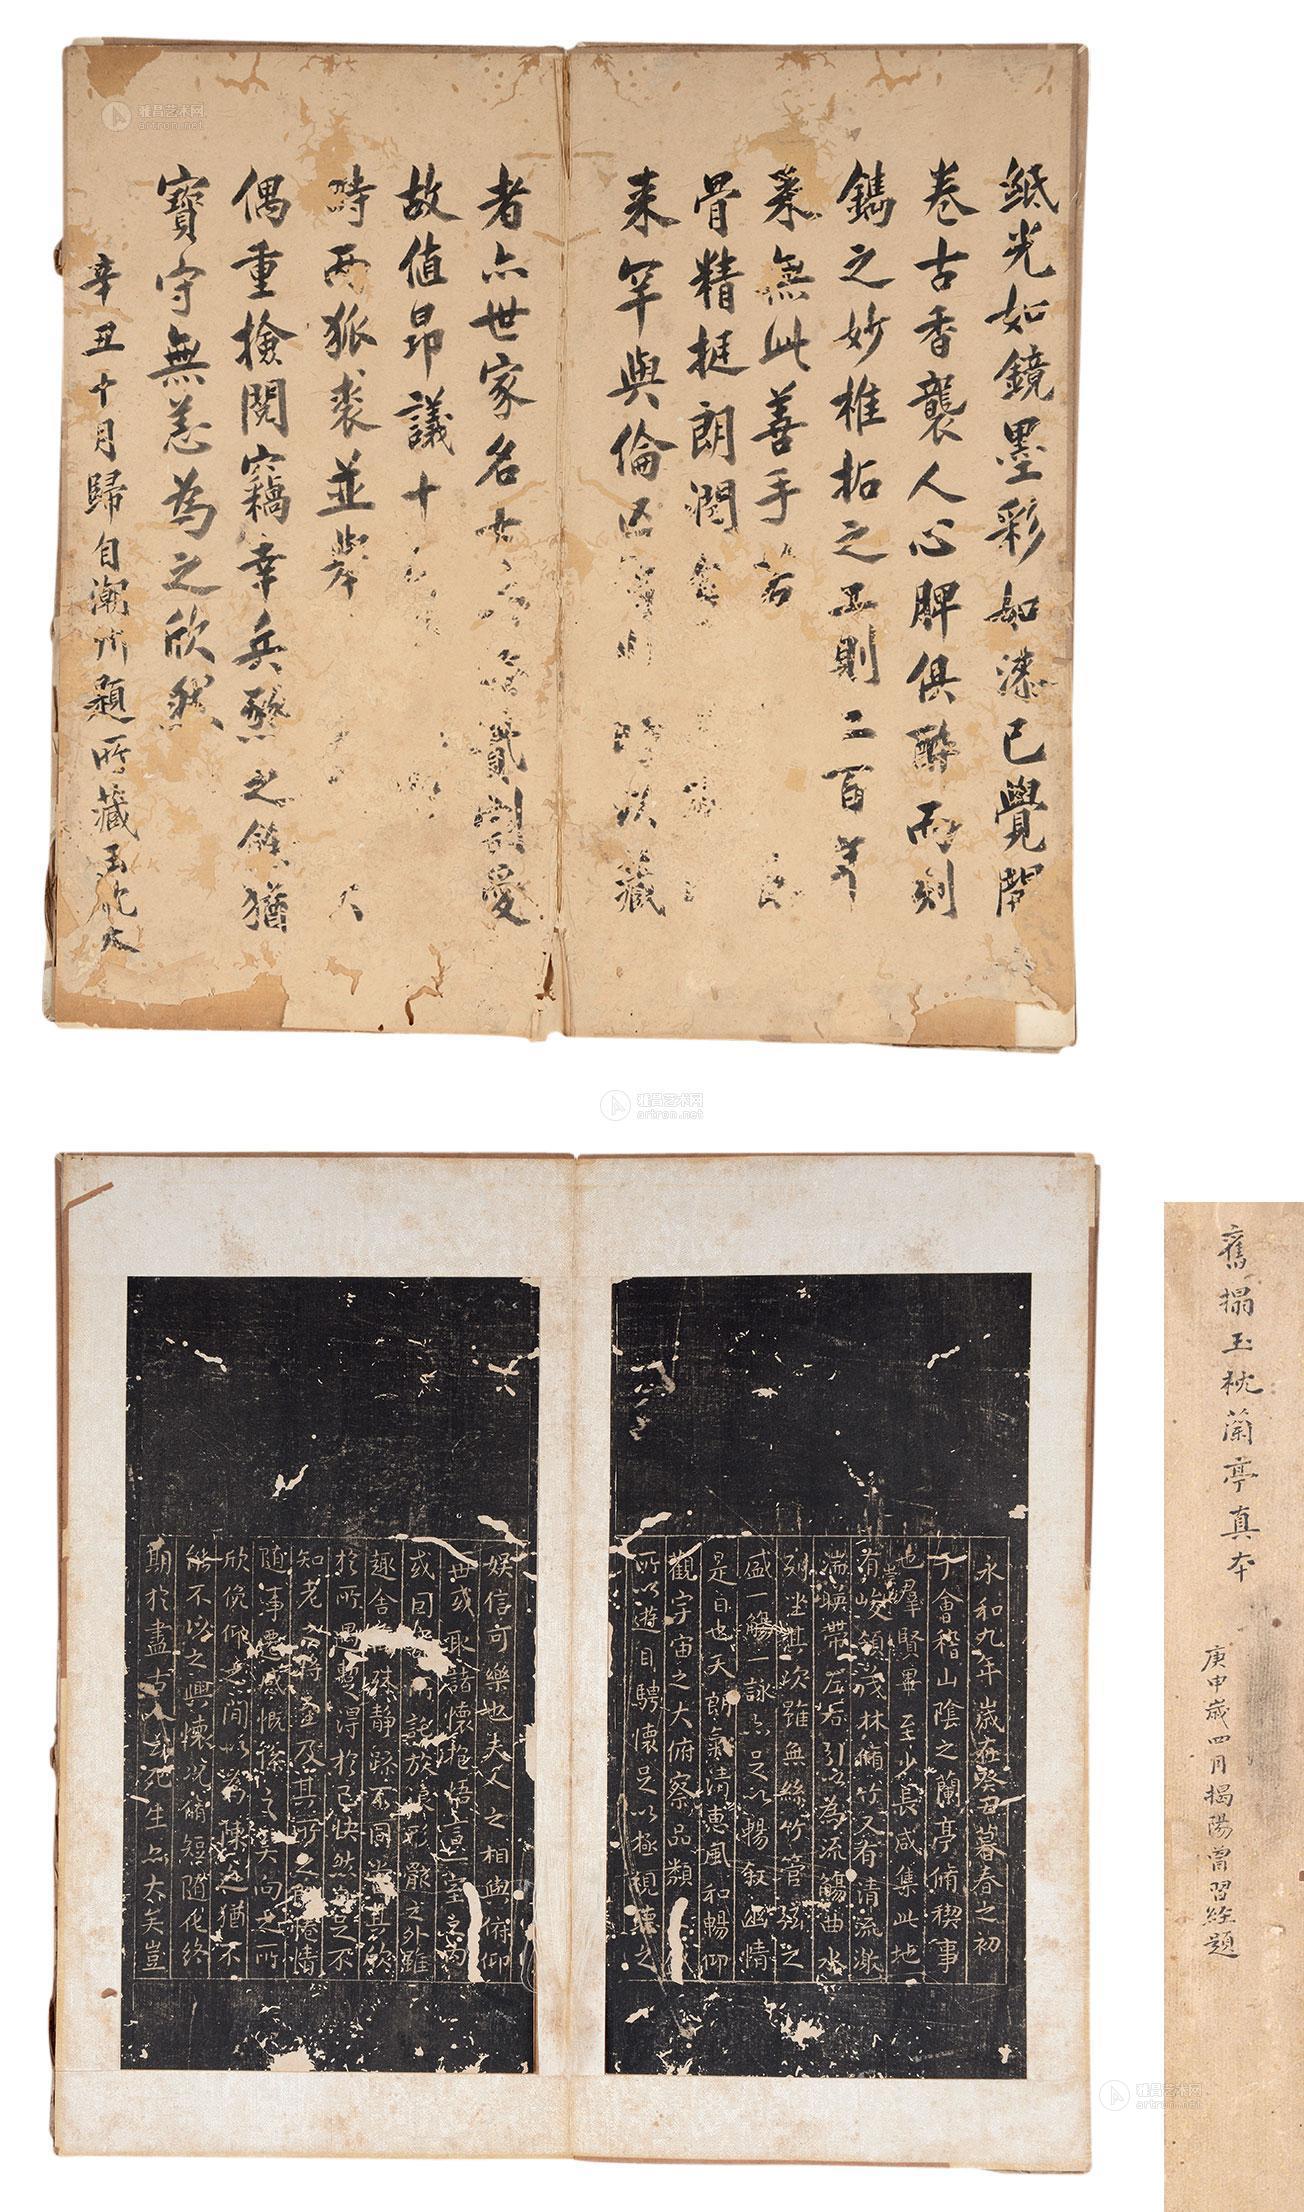 紙光如鏡墨彩如漆已覺開
卷古香襲人心脾俱醉而刻
鐫之妙椎拓之工則二百年
來無此善手
骨精挺朗潤
來罕與倫
藏
者亦世家名
貳割愛
故值昂議十
時兩狐裘並
偶重檢閱竊幸兵燹之餘猶
寶守無恙為之欣然
辛丑十月歸自潮州題所藏玉枕本
雅昌艺术网
artron.net
雅昌艺术网
artron.net
永和九年歲在癸丑暮春之初
于會稽山陰之蘭亭脩禊事
也羣賢畢至少長咸集此地
有崇峻領茂林脩竹又有清流激
湍暎帶左右引以為流觴曲水
列坐其次雖無絲竹管弦之
盛一觴一詠亦足以暢敘幽情
是日也天朗氣清惠風和暢仰
觀宇宙之大俯察品類
所以遊目騁懷足以極視聽之
娛信可樂也夫人之相與俯仰
一世或取諸懷抱悟言一室之內
或因 所託放浪形骸之外雖
趣舍 殊靜躁不同 其欣
於所遇暫得於己快然自足不
知老之將至及其所之 惓情
隨事遷感慨係之矣向之所
欣俛仰之間以為陳迹猶不
能不以之興懷況脩短隨化終
期於盡古人云死生亦大矣豈
舊搨玉枕蘭亭真本
庚申歲四月揭陽曾習經題
雅昌艺术网
artron.net